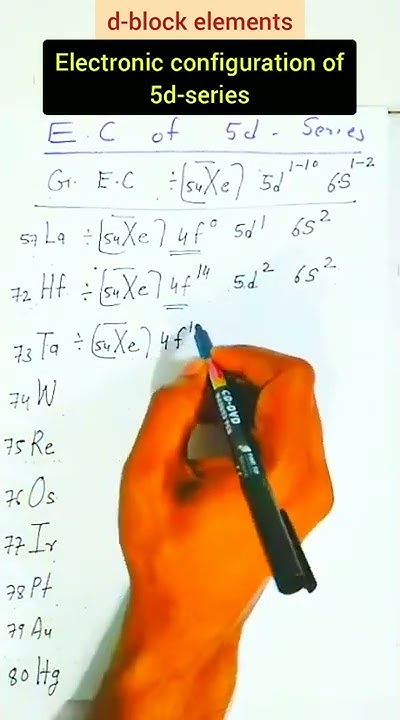 d-block elements
Electronic configuration of
5d-series
E.C of 5d-Series
Gr. E.C ÷ (54Xe) 5d¹⁻¹⁰ 6S¹⁻²
57La ÷ (54Xe) 4f⁰ 5d¹ 6S²
72Hf ÷ (54Xe) 4f¹⁴ 5d² 6S²
73Ta ÷ (54Xe) 4f¹
74W
75Re
76Os
77Ir
78Pt
79Au
80Hg
CD-DVD